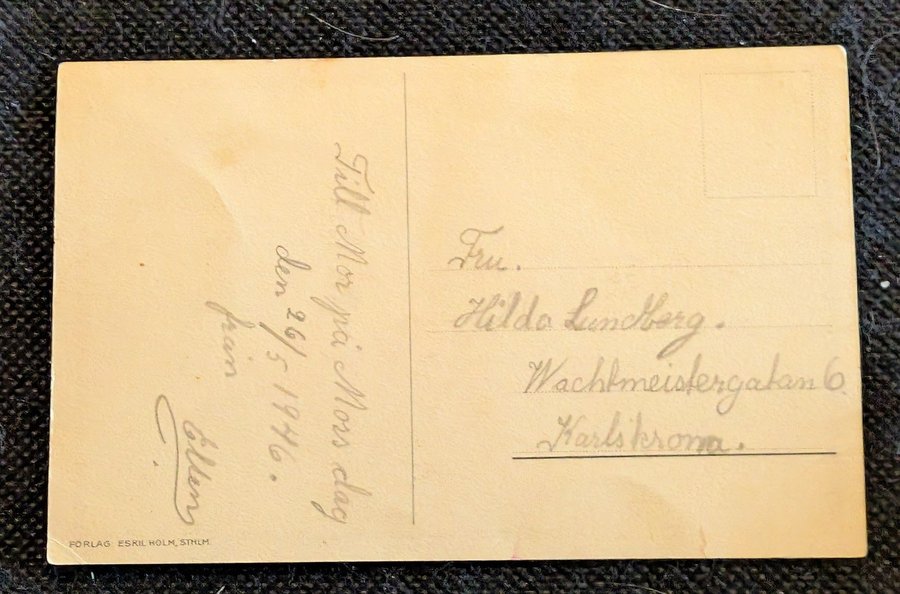 Till Mor på Mors dag
den 26/5 1946.
från
Ellen
Fru.
Hilda Lundberg.
Wachtmeistergatan 6
Karlskrona.
FÖRLAG ESKIL HOLM, STHLM.